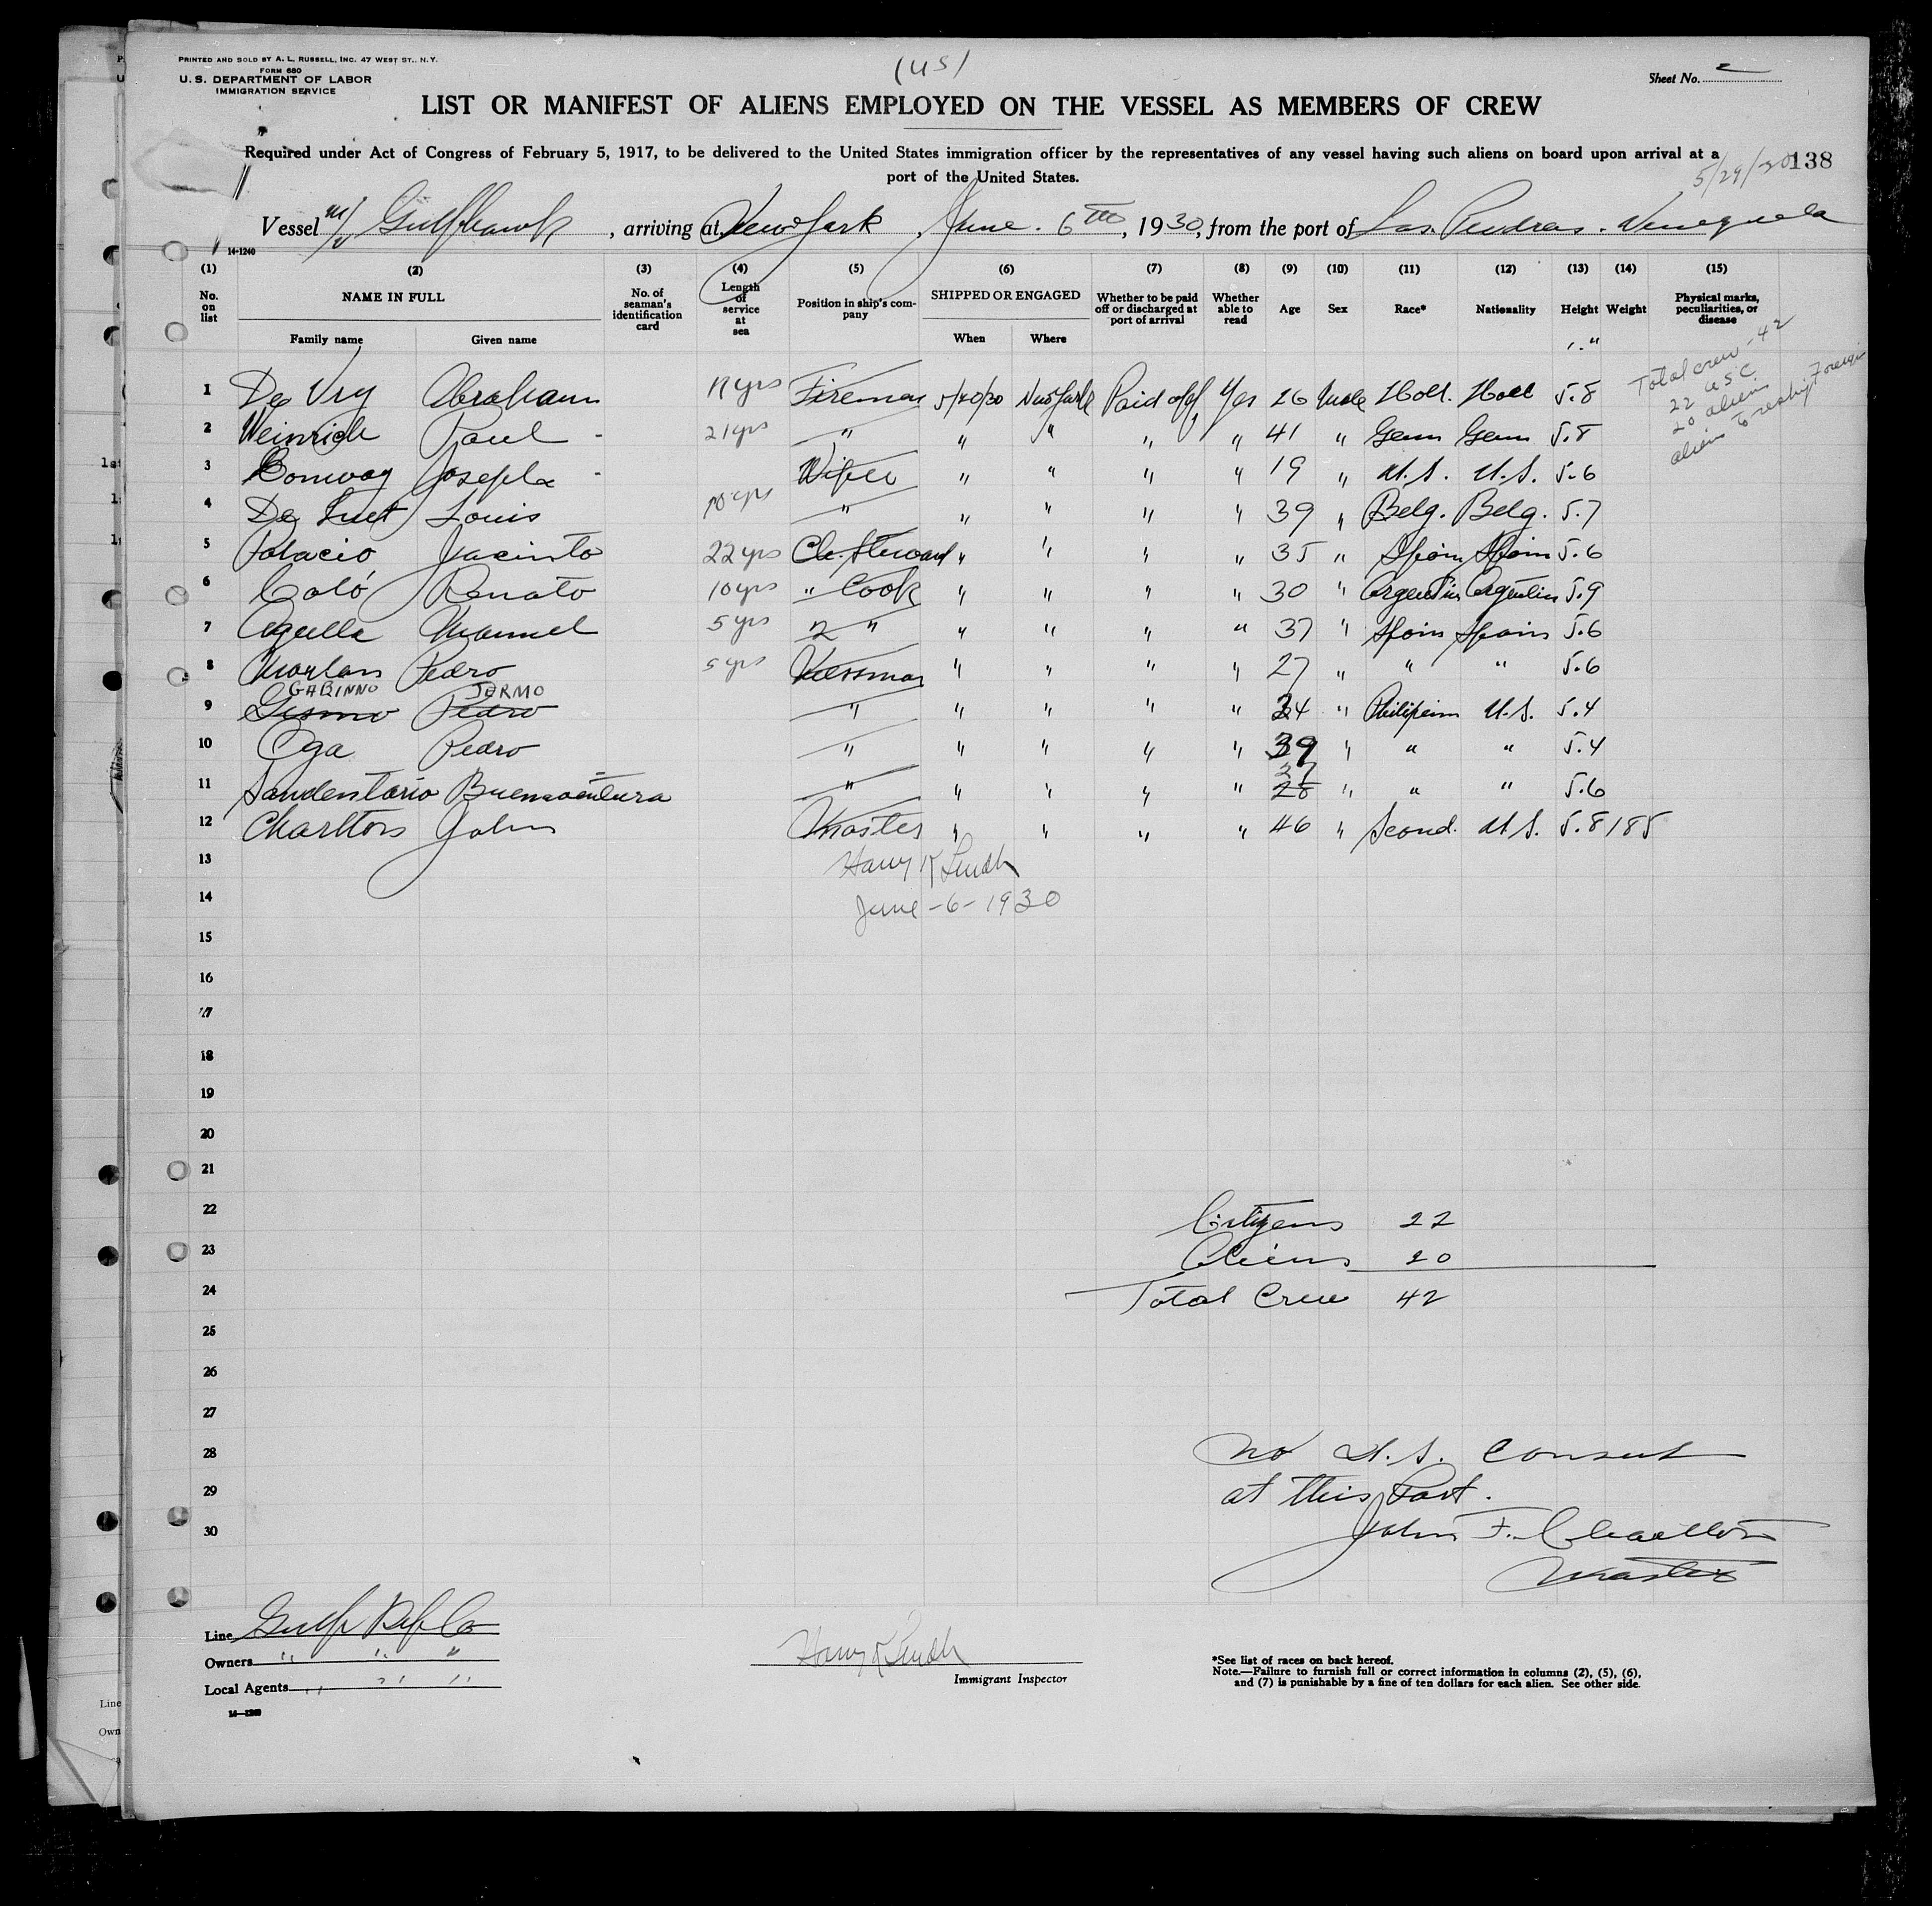 PRINTED AND SOLD BY A. L. RUSSELL, INC. 47 WEST ST., N.Y.
FORM 680
U. S. DEPARTMENT OF LABOR
IMMIGRATION SERVICE
(US)
Sheet No. 2
LIST OR MANIFEST OF ALIENS EMPLOYED ON THE VESSEL AS MEMBERS OF CREW
Required under Act of Congress of February 5, 1917, to be delivered to the United States immigration officer by the representatives of any vessel having such aliens on board upon arrival at a
port of the United States.
5/29/30 138
Vessel M/V Gulfhawk, arriving at New York, June. 6th, 1930, from the port of Las Piedras. Venezuela
14-1240
(1) (2) (3) (4) (5) (6) (7) (8) (9) (10) (11) (12) (13) (14) (15)
No. on list NAME IN FULL Family name Given name No. of seaman's identification card Length of service at sea Position in ship's company SHIPPED OR ENGAGED When Where Whether to be paid off or discharged at port of arrival Whether able to read Age Sex Race* Nationality Height Weight Physical marks, peculiarities, or disease
Total crew - 42
22 USC
20 aliens
aliens to reship Foreign
1 De Vry Abraham 11 yrs Fireman 5/20/30 New York Paid off Yes 26 Male Holl. Holl 5.8
2 Weinrich Paul - 21 yrs " " " " " 41 " Germ Germ 5.8
3 Conway Joseph - Wiper " " " " 19 " U.S. U.S. 5.6
4 De Louis 10 yrs " " " " " 39 " Belg. Belg. 5.7
5 Palacio Jacinto 22 yrs Ch. Steward " " " " 35 " Spain Spain 5.6
6 Caló Renato 10 yrs " Cook " " " " 30 " Argentin Argentin 5.9
7 Agulla Manuel 5 yrs 2 " " " " " 37 " Spain Spain 5.6
8 Morlan Pedro 5 yrs Messman " " " " 27 " " " 5.6
GABINNO JERMO
9 Gesmo Pedro " " " " " 34 " Philipeim U.S. 5.4
10 Oga Pedro " " " " " 39 " " " 5.4
27
11 Sandentario Buenaventura " " " " " 28 " " " 5.6
12 Charlton John Master " " " " 46 " Scand. U.S. 5.8 185
13 Harry K
14 June - 6 - 1930
15
16
17
18
19
20
21
22 Citizens 22
23 Aliens 20
24 Total Crew 42
25
26
27
28 No U.S. Consul
29 at this Port.
30 John F. Charlton
Master
Line Gulf Ref Co
Owners " " "
Local Agents " " "
Harry K
Immigrant Inspector
*See list of races on back hereof.
Note.—Failure to furnish full or correct information in columns (2), (5), (6),
and (7) is punishable by a fine of ten dollars for each alien. See other side.